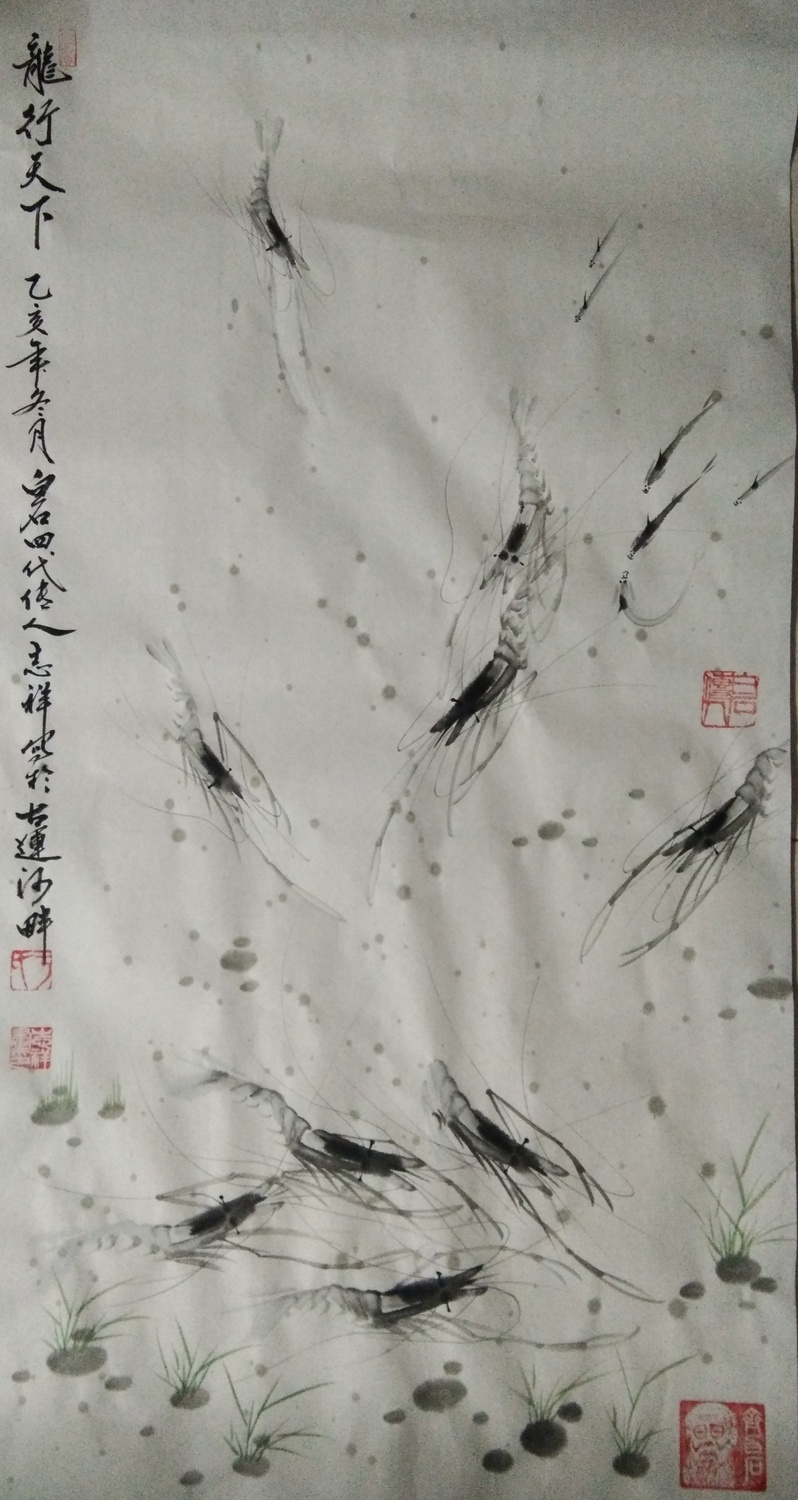 龍行天下
乙亥年冬月白石四代傳人志祥寫於古運河畔
齊白石